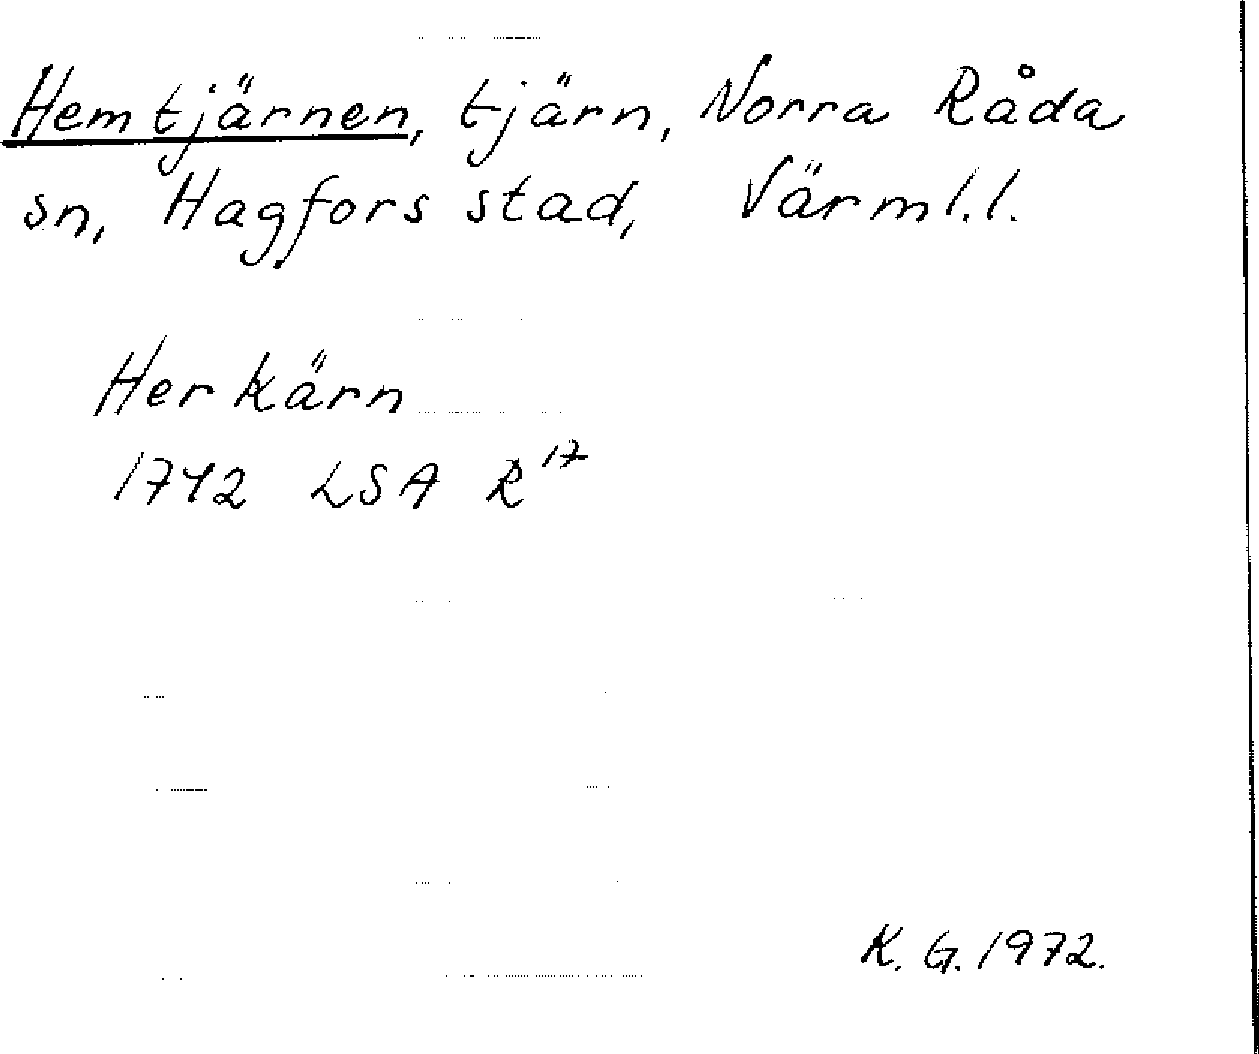 Hemtjärnen, tjärn, Norra Råda
sn, Hagfors stad, Värml.l.
Herkärn
1742 LSA R17
K.G.1972.